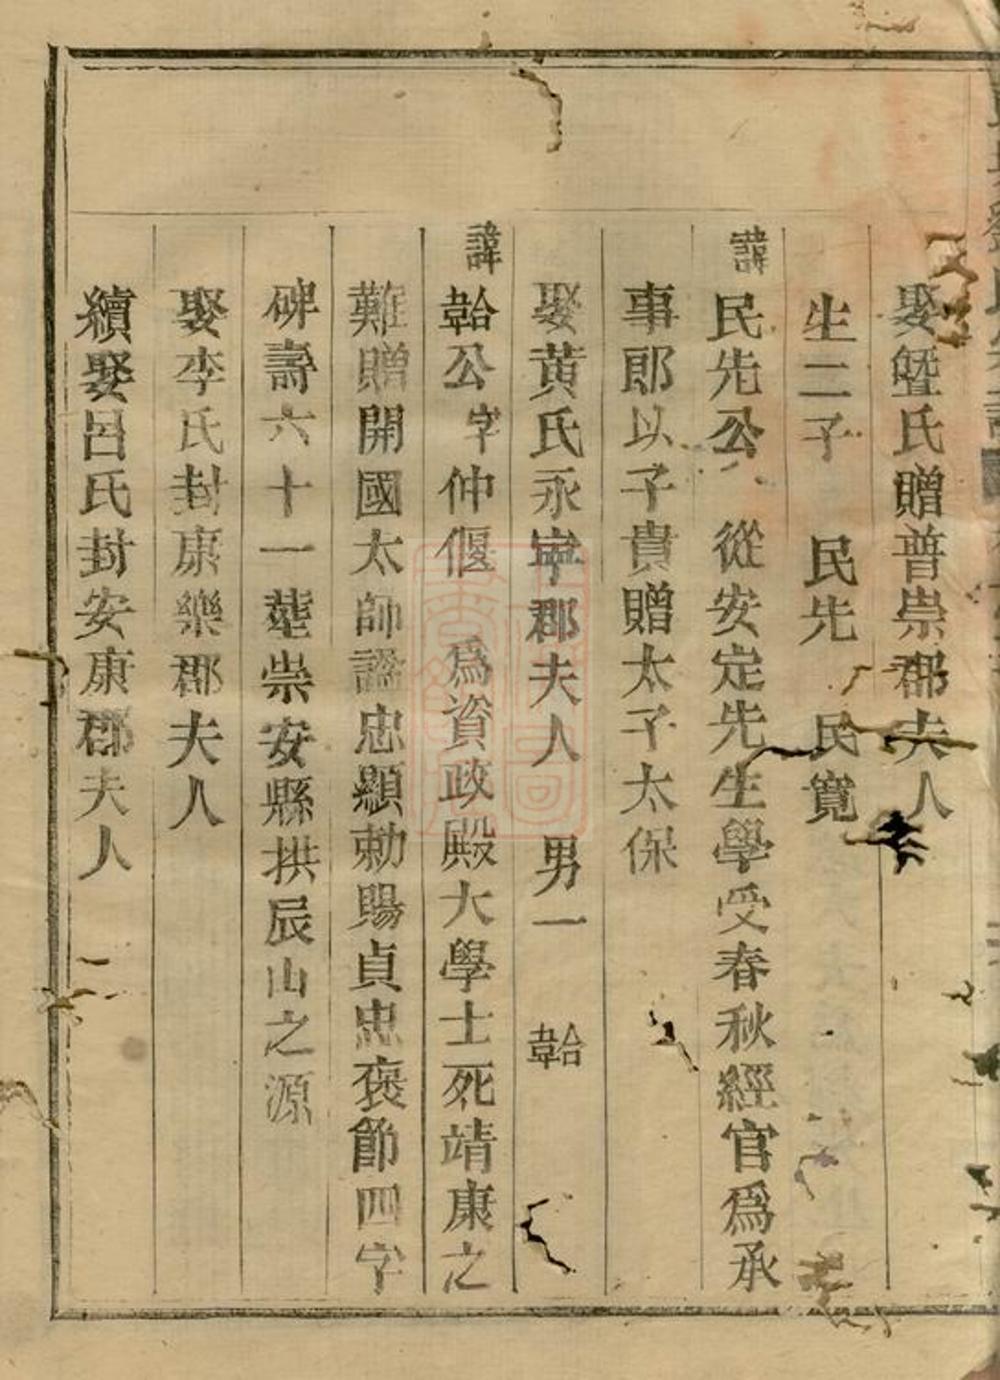 娶曁氏贈普崇郡夫人
生二子 民先 民寬
諱民先公 從安定先生學受春秋經官爲承
事郎以子貴贈太子太保
娶黄氏永寧郡夫人 男一 韐
諱韐公字仲偃 爲資政殿大學士死靖康之
難贈開國太師諡忠顯勅賜貞忠褒節四字
碑壽六十一塟崇安縣拱辰山之源
娶李氏封康樂郡夫人
續娶呂氏封安康郡夫人 一